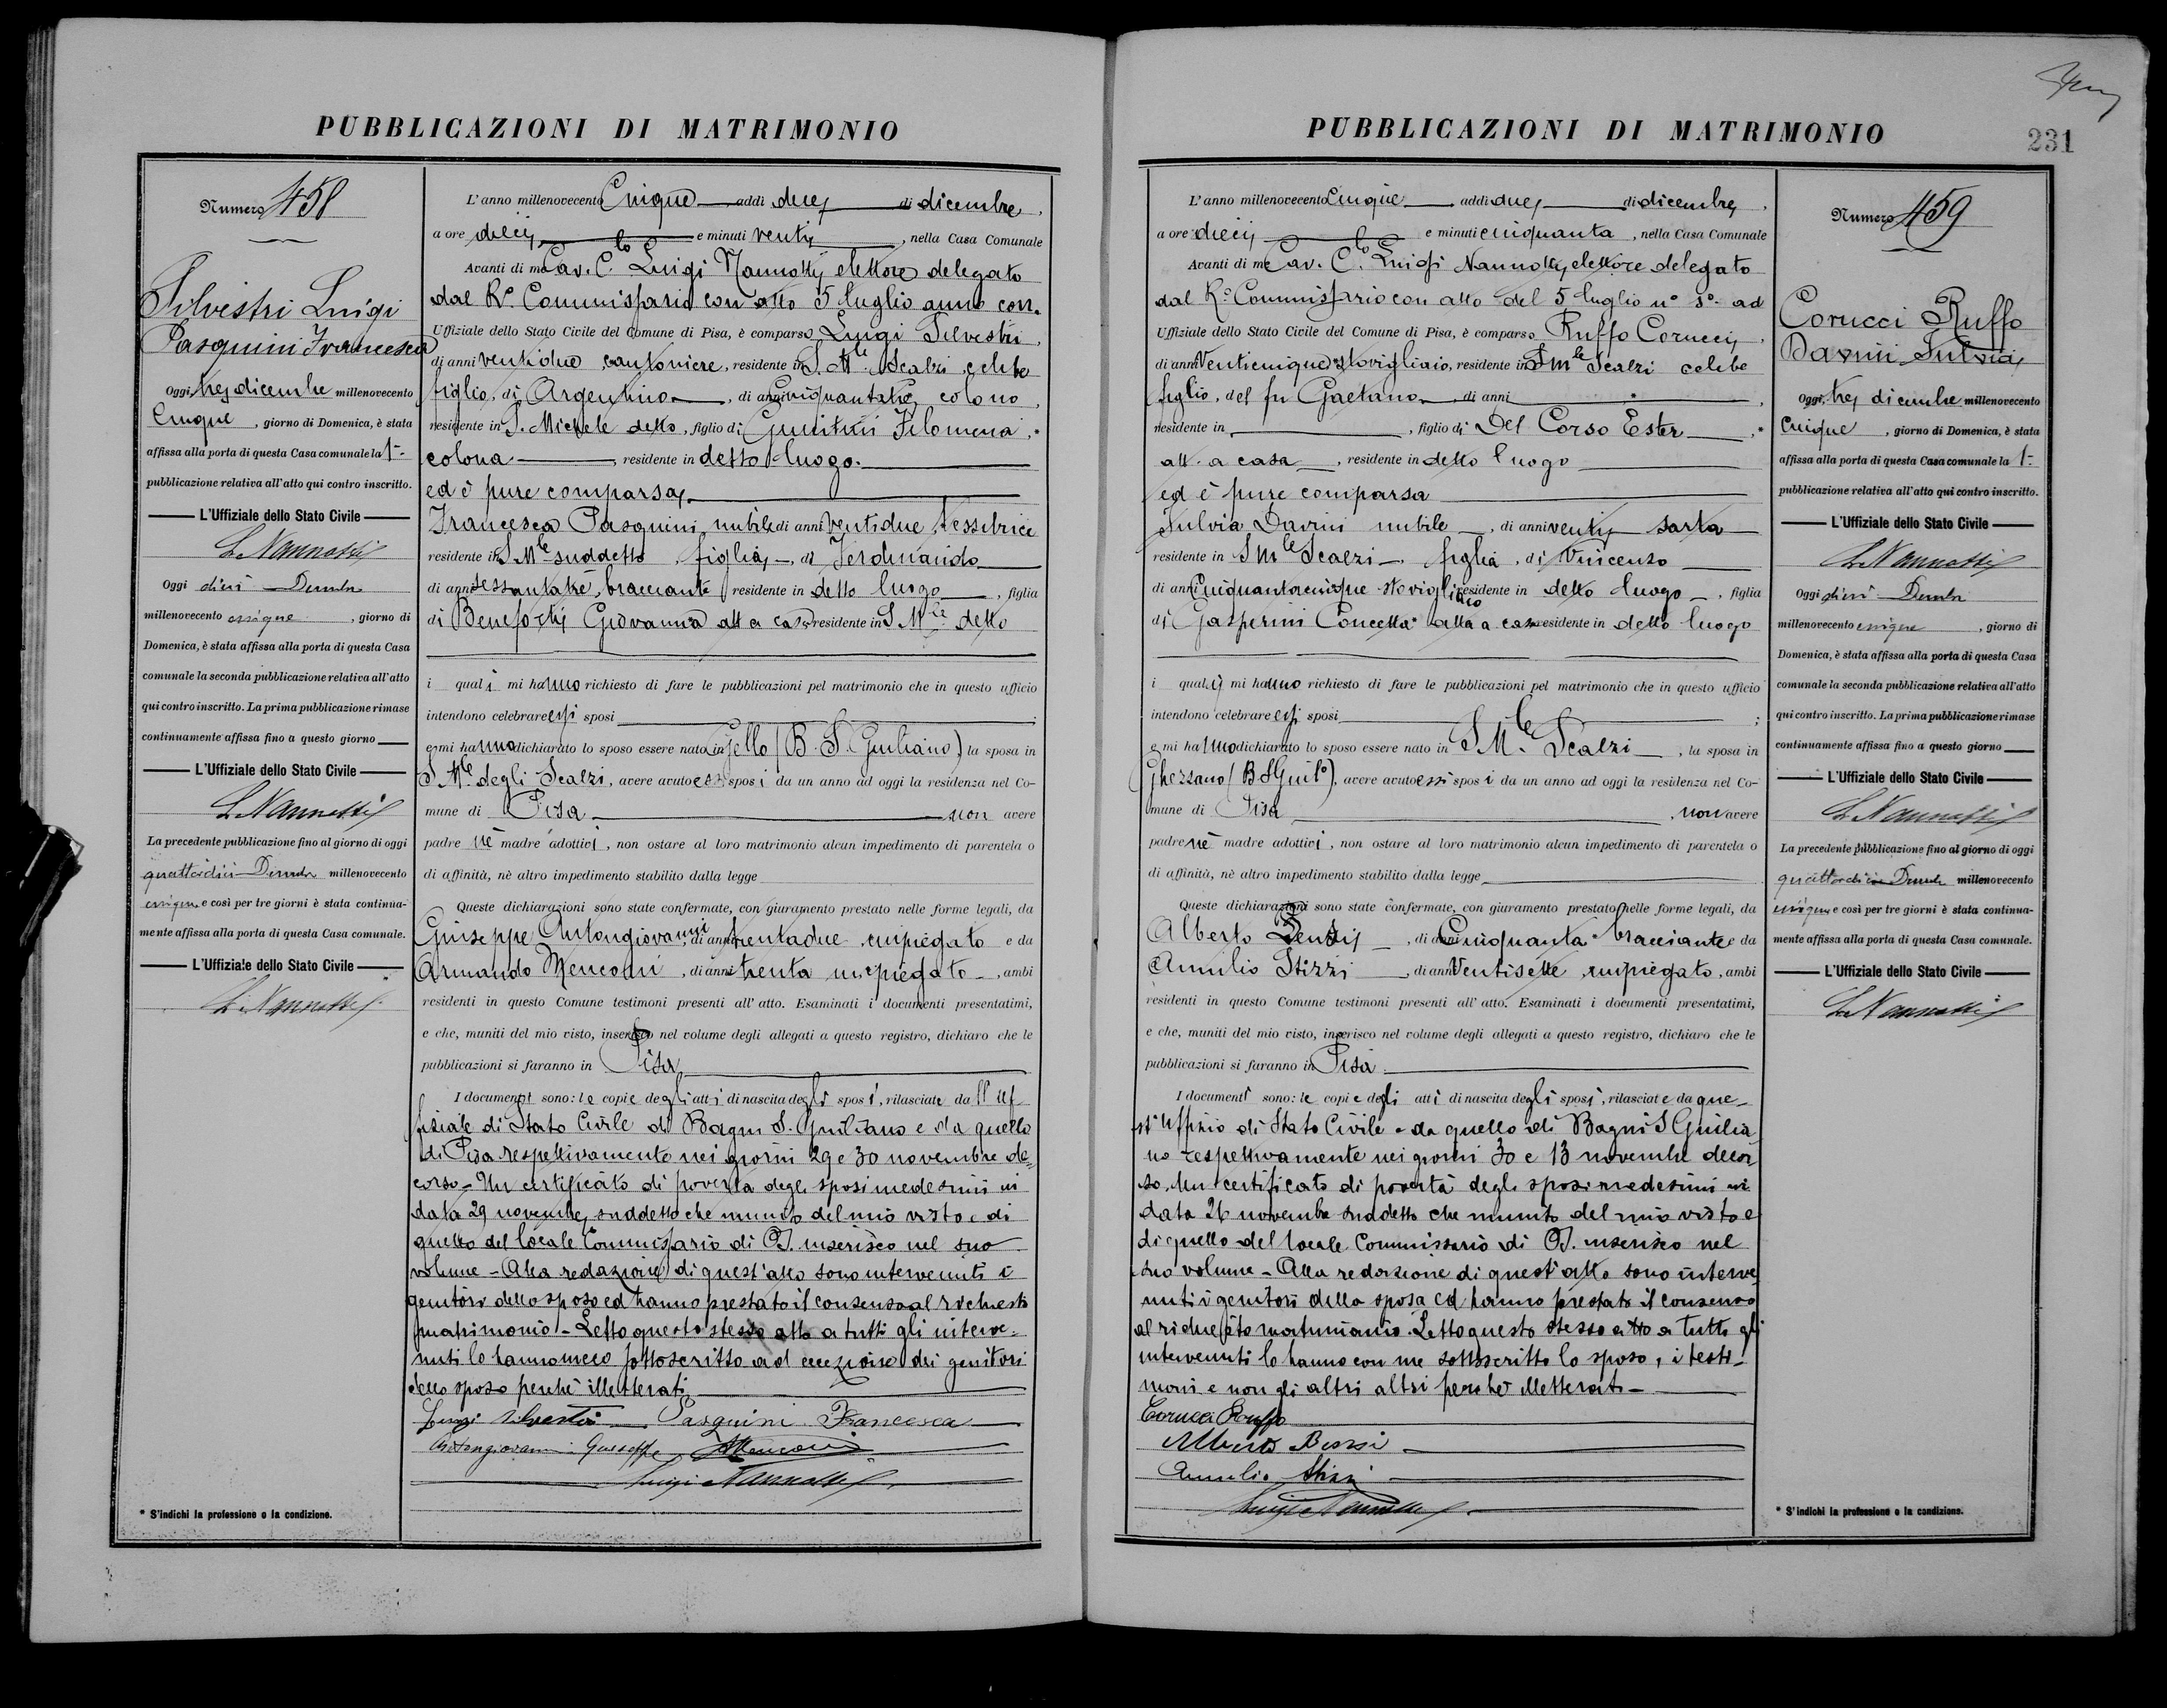 PUBBLICAZIONI DI MATRIMONIO
Numero 458
Silvestri Luigi
Pasquini Francesca
Oggi, tre dicembre millenovecento
cinque, giorno di Domenica, è stata
affissa alla porta di questa Casa comunale la 1ª
pubblicazione relativa all'atto qui contro inscritto.
L'Uffiziale dello Stato Civile
L. Nannotti
Oggi dieci Dicembre
millenovecento cinque, giorno di
Domenica, è stata affissa alla porta di questa Casa
comunale la seconda pubblicazione relativa all'atto
qui contro inscritto. La prima pubblicazione rimase
continuamente affissa fino a questo giorno
L'Uffiziale dello Stato Civile
L. Nannotti
La precedente pubblicazione fino al giorno di oggi
quattordici Dicembre millenovecento
cinque e così per tre giorni è stata continua-
mente affissa alla porta di questa Casa comunale.
L'Uffiziale dello Stato Civile
L. Nannotti
* S'indichi la professione o la condizione.
L'anno millenovecento Cinque addì due di dicembre,
a ore dieci e minuti venti, nella Casa Comunale
Avanti di me Cav. C.lo Luigi Nannotti elettore delegato
dal R.o Commissario con atto 5 luglio anno corr.
Uffiziale dello Stato Civile del Comune di Pisa, è comparso Luigi Silvestri,
di anni ventidue, cantoniere, residente in S. M.le Scalzi, celibe
figlio, di Argentino, di anni cinquantatre, colono,
residente in S. Michele detto, figlio di Filomena,*
colona, residente in detto luogo.
ed è pure comparsa
Francesca Pasquini, nubile di anni ventidue, tessitrice
residente in S. M.le suddetto figlia, di Ferdinando
di anni sessantatre, bracciante residente in detto luogo, figlia
di Beneforti Giovanna att a casa residente in S. M.le detto
i quali mi hanno richiesto di fare le pubblicazioni pel matrimonio che in questo ufficio
intendono celebrare essi sposi;
e mi hanno dichiarato lo sposo essere nato in Gello (B. S. Giuliano) la sposa in
S. M.le degli Scalzi, avere avuto essi sposi da un anno ad oggi la residenza nel Co-
mune di Pisa non avere
padre nè madre adottivi, non ostare al loro matrimonio alcun impedimento di parentela o
di affinità, nè altro impedimento stabilito dalla legge
Queste dichiarazioni sono state confermate, con giuramento prestato nelle forme legali, da
Giuseppe Antongiovanni, di anni trentadue, impiegato e da
Armando Menconi, di anni trenta impiegato, ambi
residenti in questo Comune testimoni presenti all'atto. Esaminati i documenti presentatimi,
e che, muniti del mio visto, inserisco nel volume degli allegati a questo registro, dichiaro che le
pubblicazioni si faranno in Pisa
I documenti sono: le copie degli atti di nascita degli sposi, rilasciate dall'uf
fiziale di Stato Civile di Bagni S. Giuliano e da quello
di Pisa respettivamente nei giorni 29 e 30 novembre de=
corso. Un certificato di povertà degli sposi medesimi in
data 29 novembre suddetto che munito del mio visto e di
quello del locale Commissario di P.S. inserisco nel suo
volume - Alla redazione di quest'atto sono intervenuti i
genitori dello sposo ed hanno prestato il consenso al richiesto
matrimonio - Letto questo stesso atto a tutti gli interve=
nuti lo hanno meco sottoscritto ad eccezione dei genitori
dello sposo perchè illetterati
Luigi Silvestri Pasquini Francesca
Antongiovanni Giuseppe AMenconi
Luigi Nannotti
PUBBLICAZIONI DI MATRIMONIO
231
L'anno millenovecento Cinque addì due di dicembre,
a ore dieci e minuti cinquanta, nella Casa Comunale
Avanti di me Cav. C.lo Luigi Nannotti elettore delegato
dal R.o Commissario con atto del 5 luglio
Uffiziale dello Stato Civile del Comune di Pisa, è comparso Ruffo Corucci,
di anni Venticinque, stovigliaio, residente in S M.le Scalzi celibe
figlio, del fu Gaetano, di anni
residente in, figlio di Del Corso Ester,*
att. a casa, residente in detto luogo
ed è pure comparsa
Silvia Davini nubile, di anni venti sarta
residente in S M.le Scalzi, figlia, di Vincenzo
di anni Cinquantacinque stovigliaio residente in detto luogo, figlia
di Gasperini Concetta atta a casa residente in detto luogo
i quali mi hanno richiesto di fare le pubblicazioni pel matrimonio che in questo ufficio
intendono celebrare essi sposi;
e mi hanno dichiarato lo sposo essere nato in S. M.le Scalzi, la sposa in
Ghezzano (B S Giul.o), avere avuto essi sposi da un anno ad oggi la residenza nel Co-
mune di Pisa, non avere
padre nè madre adottivi, non ostare al loro matrimonio alcun impedimento di parentela o
di affinità, nè altro impedimento stabilito dalla legge
Queste dichiarazioni sono state confermate, con giuramento prestato nelle forme legali, da
Alberto, di anni Cinquanta bracciante e da
Aurelio Stizzi, di anni Ventisette, impiegato, ambi
residenti in questo Comune testimoni presenti all'atto. Esaminati i documenti presentatimi,
e che, muniti del mio visto, inserisco nel volume degli allegati a questo registro, dichiaro che le
pubblicazioni si faranno in Pisa.
I documenti sono: le copie degli atti di nascita degli sposi, rilasciate da que-
st'Uffizio di Stato Civile e da quello di Bagni S Giulia
no respettivamente nei giorni 30 e 13 novembre decor
so. Un certificato di povertà degli sposi medesimi in
data 26 novembre suddetto che munito del mio visto e
di quello del locale Commissario di P.S. inserisco nel
suo volume - Alla redazione di quest'atto sono interve
nuti i genitori della sposa ed hanno prestato il consenso
al richiesto matrimonio. Letto questo stesso atto a tutti gli
intervenuti lo hanno con me sottoscritto lo sposo, i testi-
moni e non gli altri altri perchè illetterati -
Corucci Ruffo
Alberto
Aurelio Stizzi
Luigi Nannotti
Numero 459
Corucci Ruffo
Davini Silvia
Oggi, tre dicembre millenovecento
cinque, giorno di Domenica, è stata
affissa alla porta di questa Casa comunale la 1ª
pubblicazione relativa all'atto qui contro inscritto.
L'Uffiziale dello Stato Civile
L. Nannotti
Oggi dieci Dicembre
millenovecento cinque, giorno di
Domenica, è stata affissa alla porta di questa Casa
comunale la seconda pubblicazione relativa all'atto
qui contro inscritto. La prima pubblicazione rimase
continuamente affissa fino a questo giorno
L'Uffiziale dello Stato Civile
L. Nannotti
La precedente pubblicazione fino al giorno di oggi
quattordici Dicembre millenovecento
cinque e così per tre giorni è stata continua-
mente affissa alla porta di questa Casa comunale.
L'Uffiziale dello Stato Civile
L. Nannotti
* S'indichi la professione o la condizione.